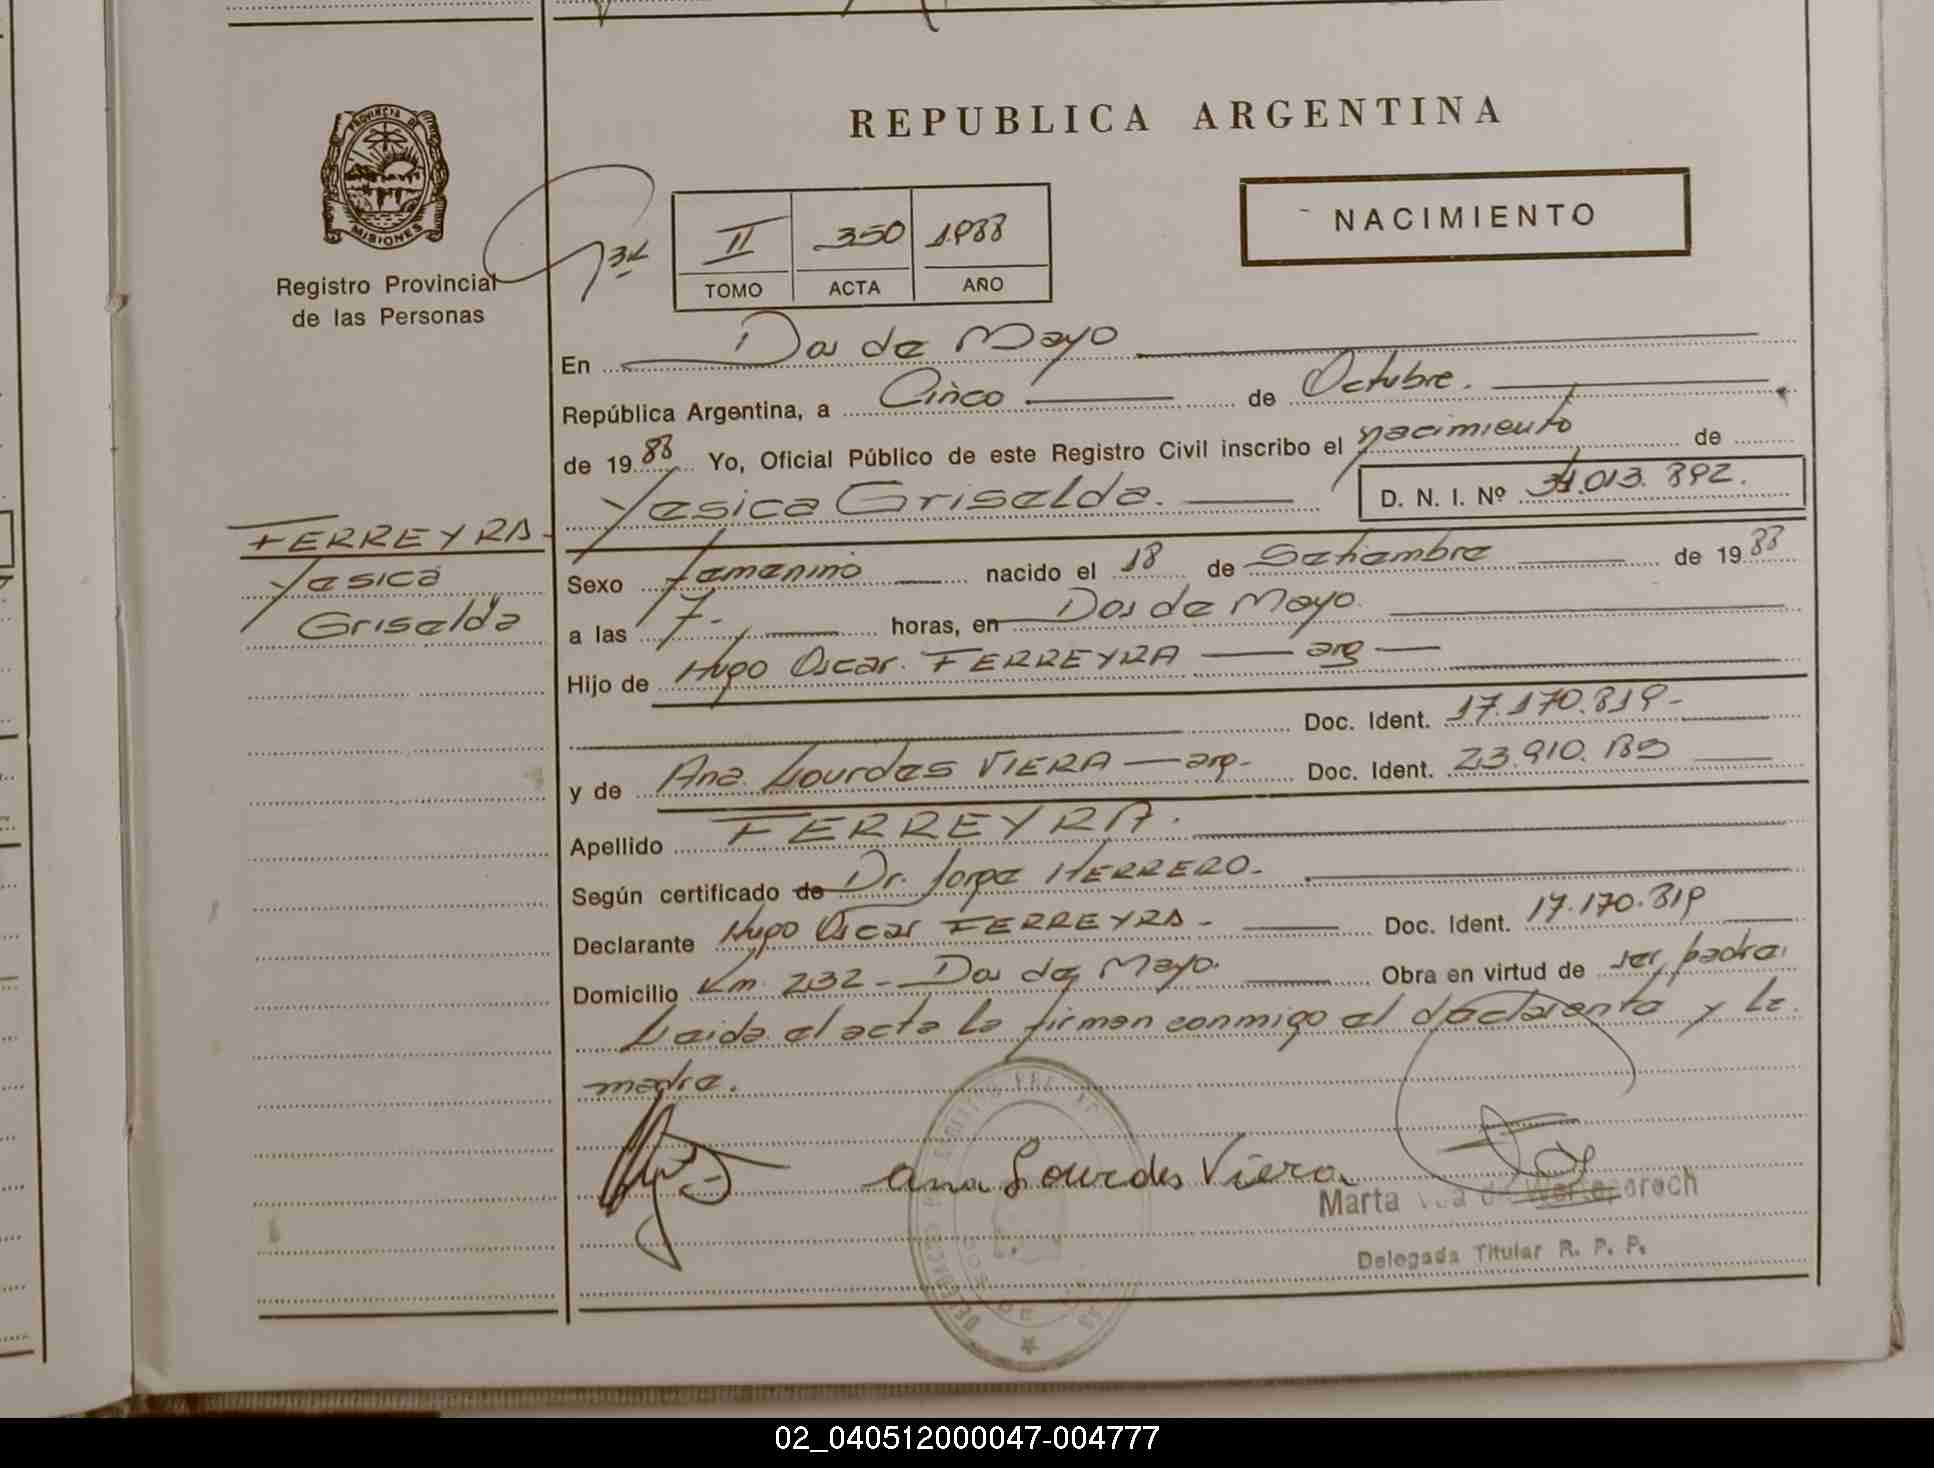 PROVINCIA DE
MISIONES
Registro Provincial
de las Personas
REPUBLICA ARGENTINA
NACIMIENTO
II 350 1988
TOMO ACTA AÑO
En Dos de Mayo
República Argentina, a Cinco de Octubre.
de 1988 Yo, Oficial Público de este Registro Civil inscribo el nacimiento de
Yesica Griselda. D. N. I. Nº 34.013.892.
FERREYRA
Yesica
Griselda
Sexo femenino nacido el 18 de Setiembre de 1988
a las 7- horas, en Dos de Mayo.
Hijo de Hugo Oscar. FERREYRA — arg —
Doc. Ident. 17.170.819-
y de Ana Lourdes VIERA — arg- Doc. Ident. 23.910.
Apellido FERREYRA.
Según certificado de Dr. Jorge HERRERO-
Declarante Hugo Oscar FERREYRA - Doc. Ident. 17.170.819
Domicilio Km 232 - Dos de Mayo. Obra en virtud de ser padre.
Leida el acta la firman conmigo el declarante y la
madre.
Ana Lourdes Viera
Marta
Delegada Titular R. P. P.
02_040512000047-004777